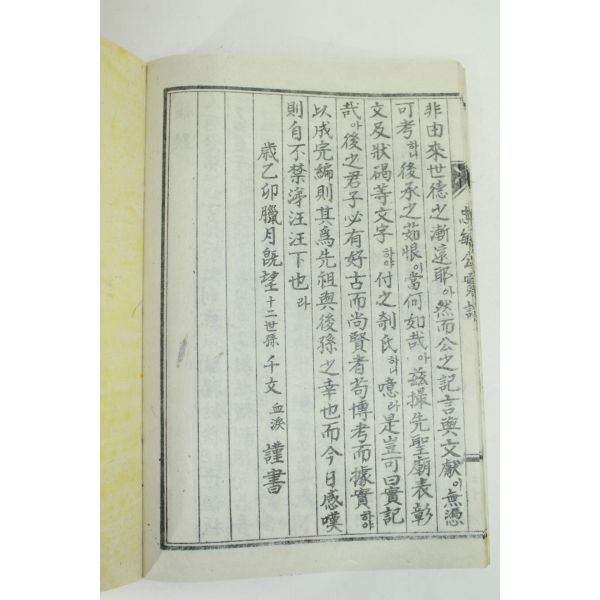 非由來世德之漸遠耶아然而公之記言與文獻이無憑
可考하니後承之茹恨이當何如哉아玆採先聖廟表彰
文及狀碣等文字하야付之剞氏하니噫라是豈可曰實記
哉아後之君子必有好古而尚賢者苟博考而據實하야
以成完編則其爲先祖與後孫之幸也而今日感嘆
則自不禁淳汪汪下也라
歲乙卯臘月旣望十二世孫千文血淚謹書